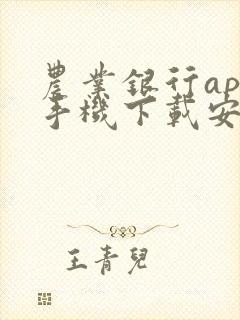 農業銀行ap
手機下載安
王青兒